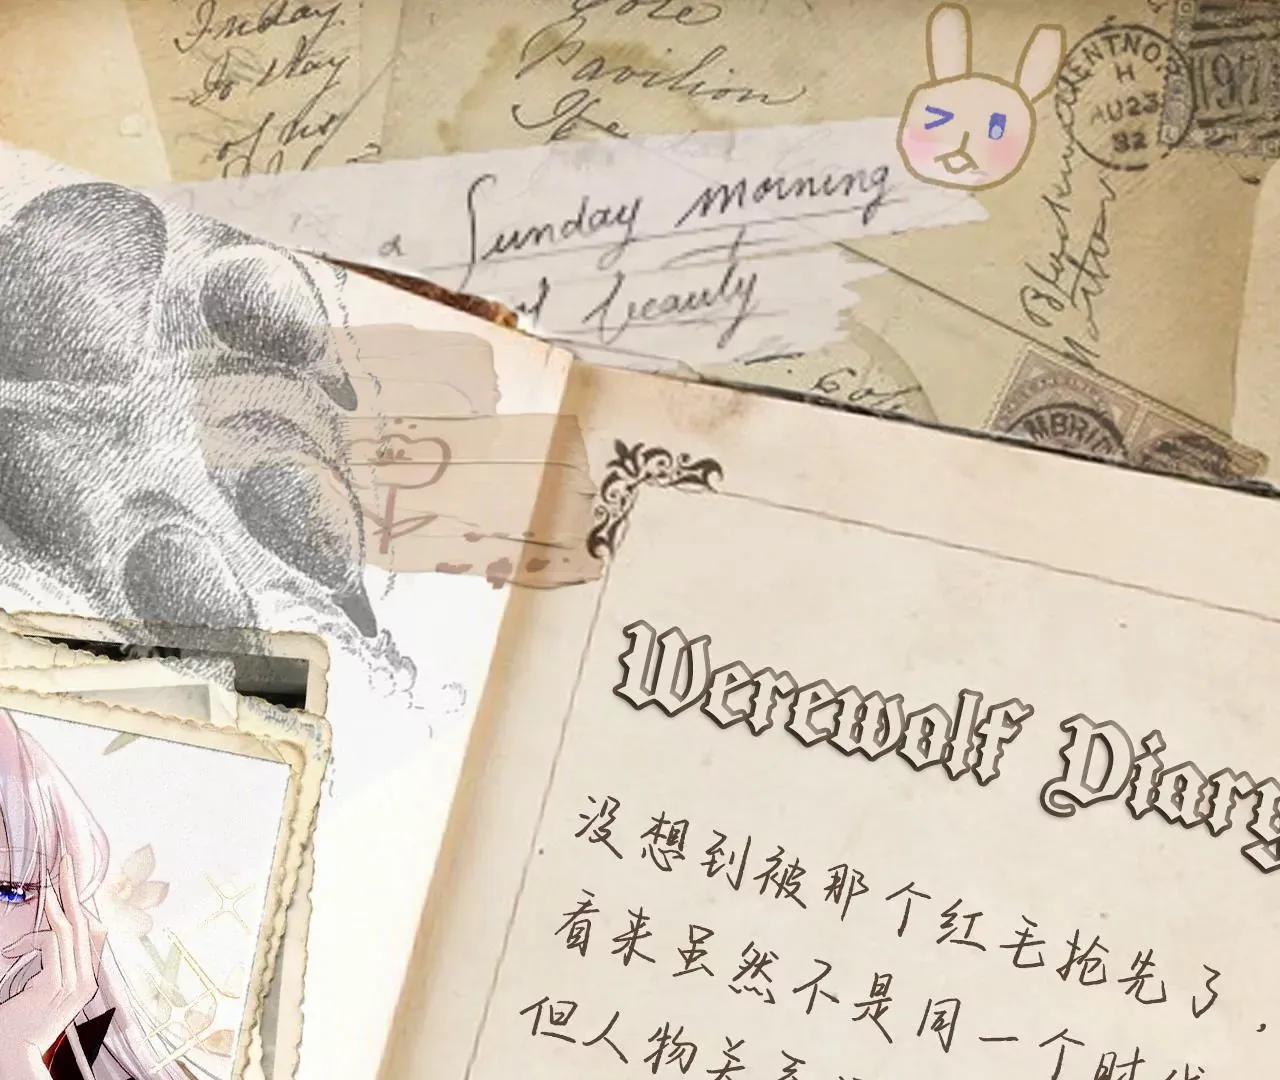 Sunday
To stay
of his
Pavilion
The
ENTNOR
H
AU23
92
197
a Sunday morning
of beauty
MBRI
Werewolf Diary
没想到被那个红毛抢先了，
看来虽然不是同一个时代
但人物关系